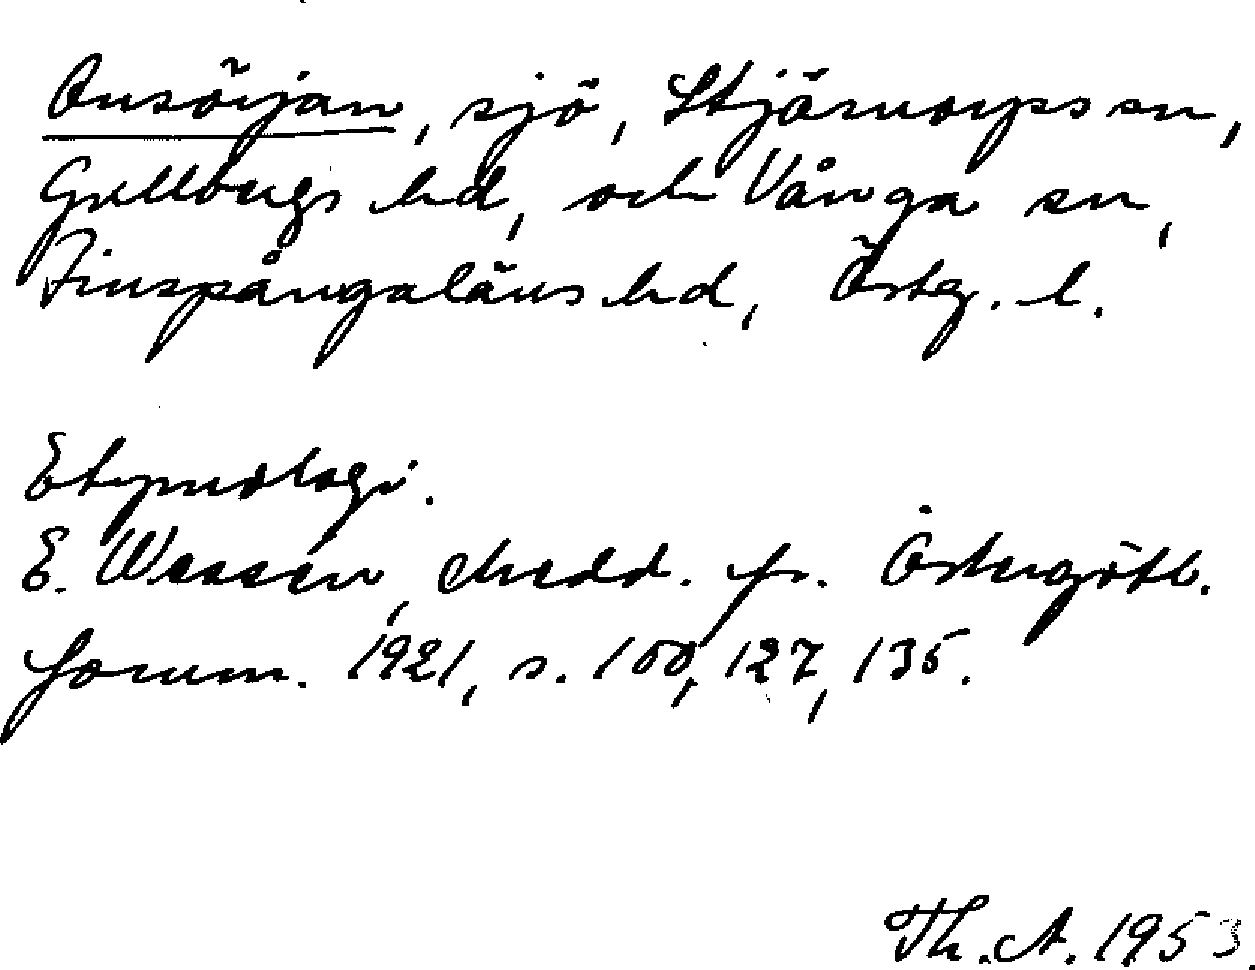 Onsörjan, sjö, Stjärnorps sn,
Gullbergs hd, och Vånga sn,
Finspångaläns hd, Östg. l.
Etymologi.
E. Wessén, Medd. fr. Östergötl.
fornm. 1921, s. 100, 127, 135.
Th. A. 1953.